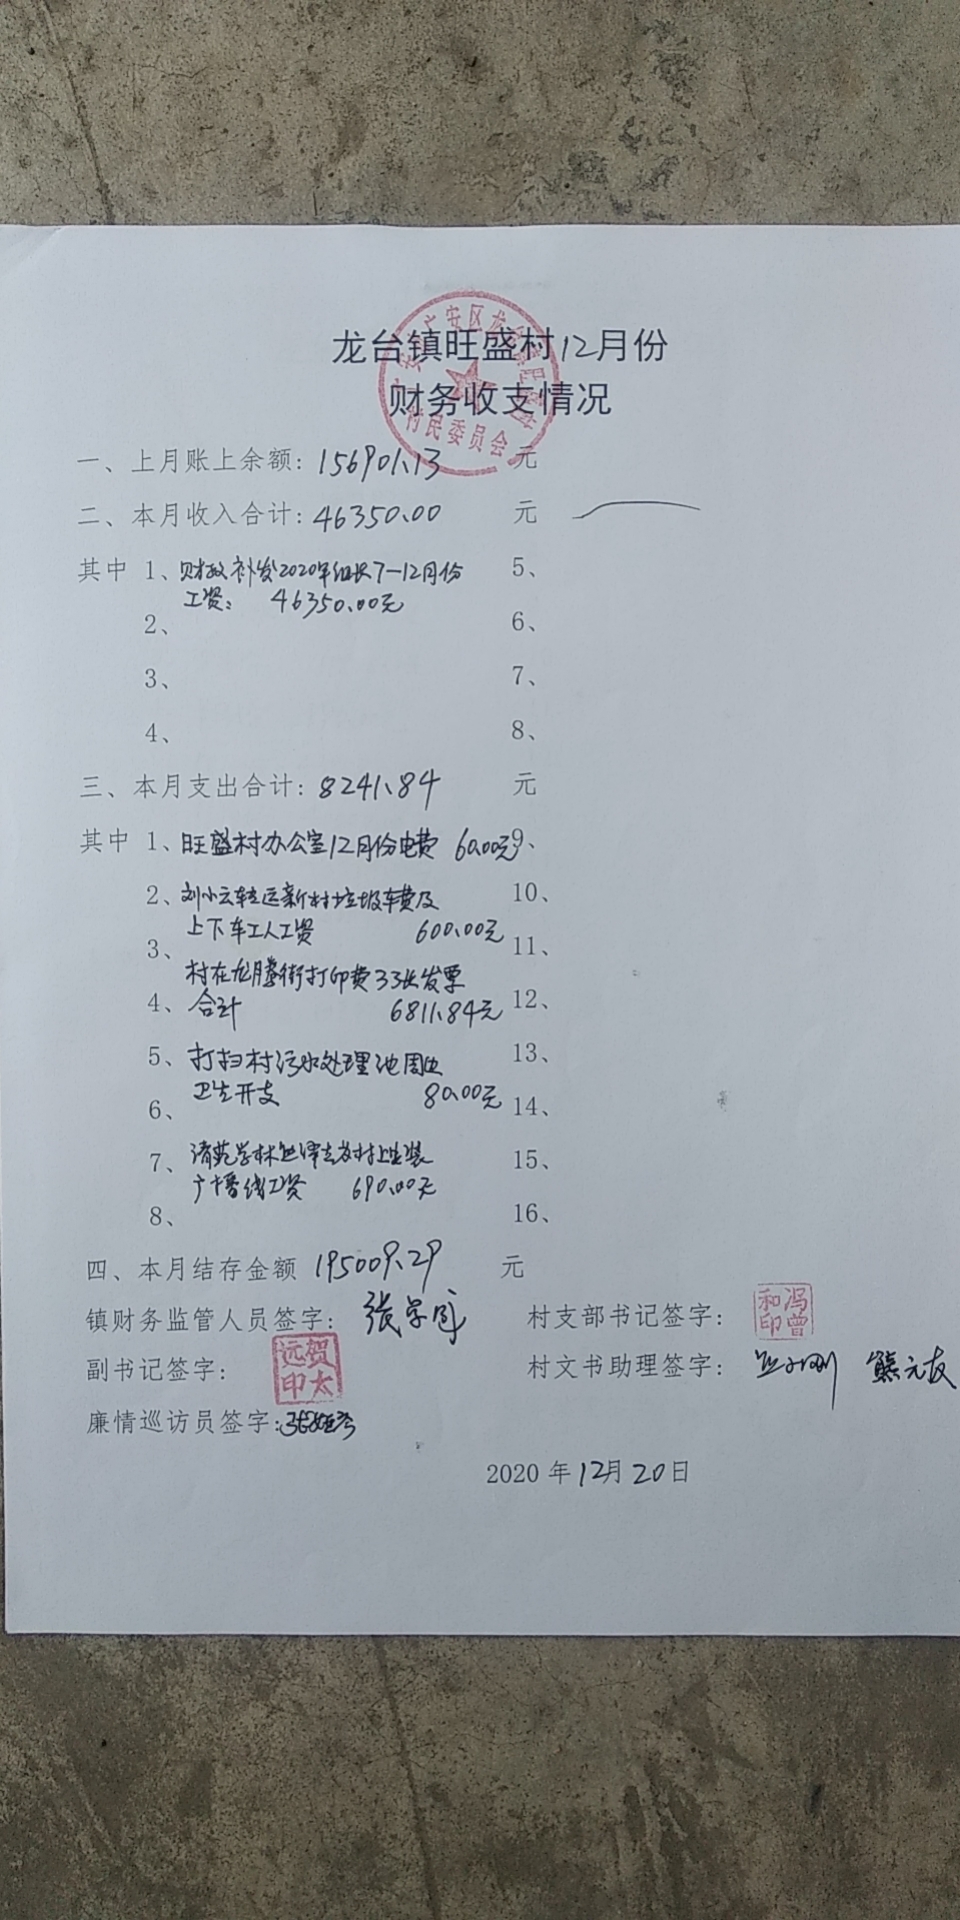 龙台镇旺盛村12月份
财务收支情况
村民委员会
一、上月账上余额：156901.13 元
二、本月收入合计：46350.00 元
其中 1、财政补发2020年组长7—12月份 5、
工资： 46350.00元
2、 6、
3、 7、
4、 8、
三、本月支出合计：8241.84 元
其中 1、旺盛村办公室12月份电费 60.00元 9、
2、刘小云转运新村垃圾车费及 10、
上下车工人工资 600.00元
3、 11、
村在龙腾街打印费33张发票
4、合计 6811.84元 12、
5、打扫村污水处理池周边 13、
卫生开支 80.00元
6、 14、
7、请苑学林 村上安装 15、
广播线工资 690.00元
8、 16、
四、本月结存金额 195009.29 元
镇财务监管人员签字： 村支部书记签字： 冯曾和印
副书记签字： 贺太远印 村文书助理签字： 熊元友
廉情巡访员签字：
2020 年 12月 20日